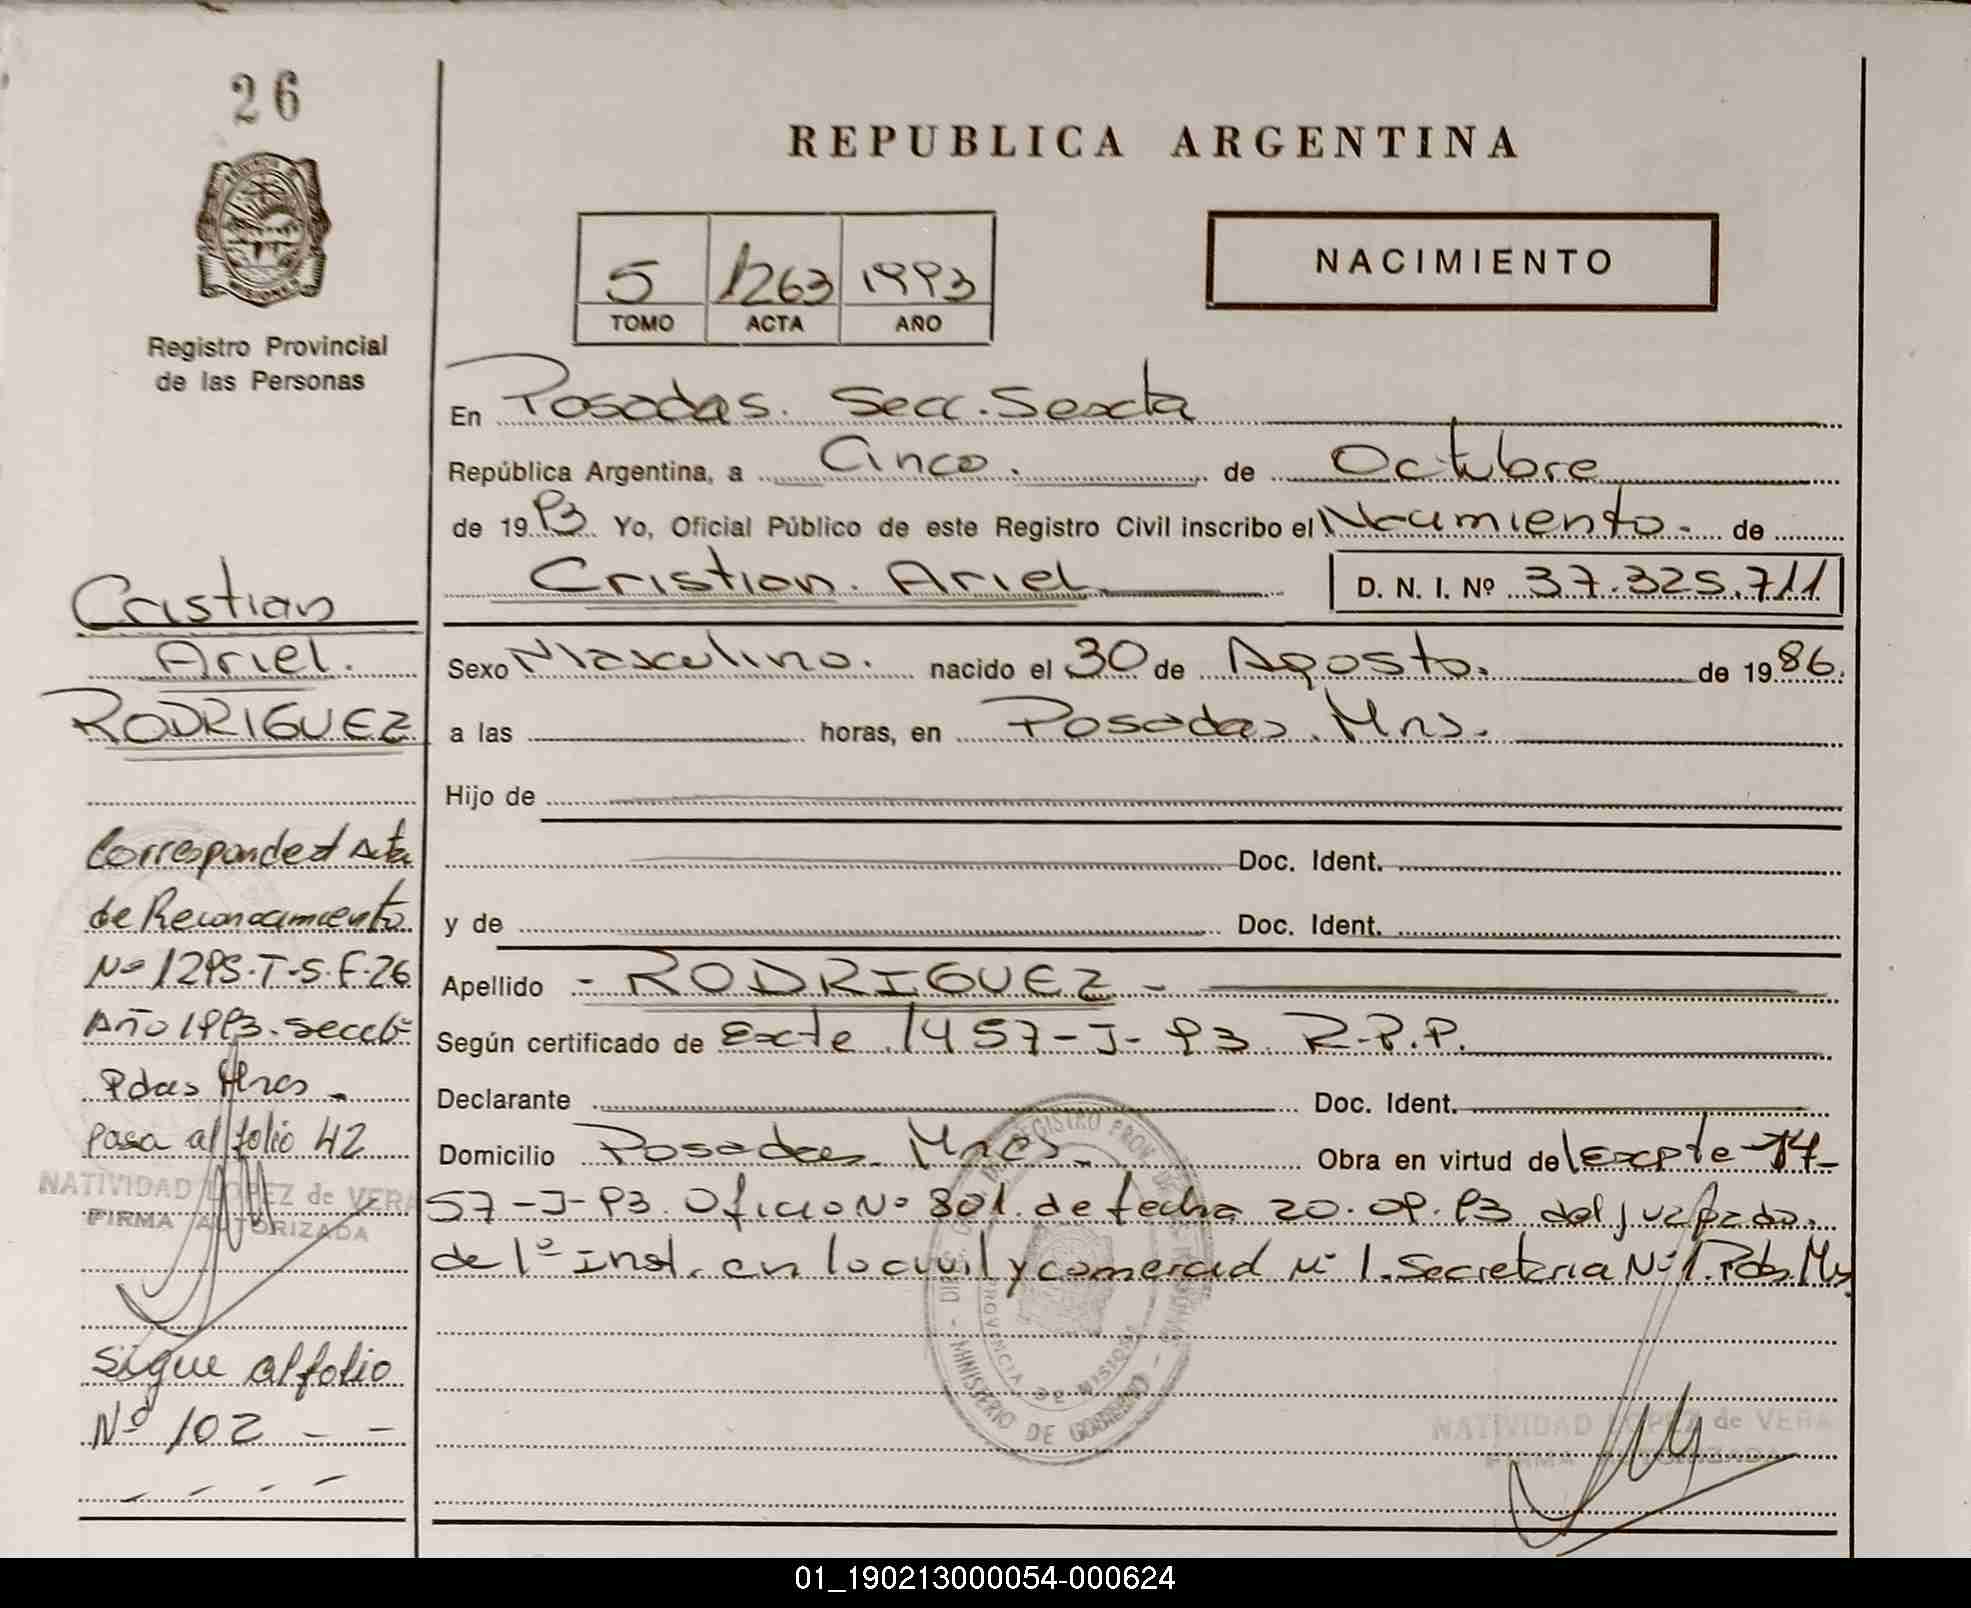 26
Registro Provincial
de las Personas
Cristian
Ariel.
RODRIGUEZ
Corresponde al Acta
de Reconocimiento
Nº 1295-T-5-F-26
Año 1993. Secc 6ª
Pdas Mnes.
pasa al folio 42
NATIVIDAD LOPEZ de VERA
FIRMA AUTORIZADA
Sigue al folio
Nº 102 - -
- - - -
REPUBLICA ARGENTINA
5 1263 1993
TOMO ACTA AÑO
NACIMIENTO
En Posadas. Secc. Sexta
República Argentina, a Cinco. de Octubre
de 1993 Yo, Oficial Público de este Registro Civil inscribo el Nacimiento. de
Cristian. Ariel D. N. I. Nº 37.325.711
Sexo Masculino. nacido el 30 de Agosto. de 1986.
a las horas, en Posadas. Mns.
Hijo de
Doc. Ident.
y de Doc. Ident.
Apellido - RODRIGUEZ -
Según certificado de Excte 1457-J-93 R.P.P.
Declarante Doc. Ident.
Domicilio Posadas Mnes. Obra en virtud de Excpte 14-
57-J-93. Oficio Nº 801. de fecha 20.09.93 del juzgado.
de 1º Inst. en lo civil y comercial Nº 1. Secretaria Nº 1. Pdas Mns
MINISTERIO DE GOBIERNO
PROVINCIA DE MISIONES
NATIVIDAD LOPEZ de VERA
FIRMA AUTORIZADA
01_190213000054-000624